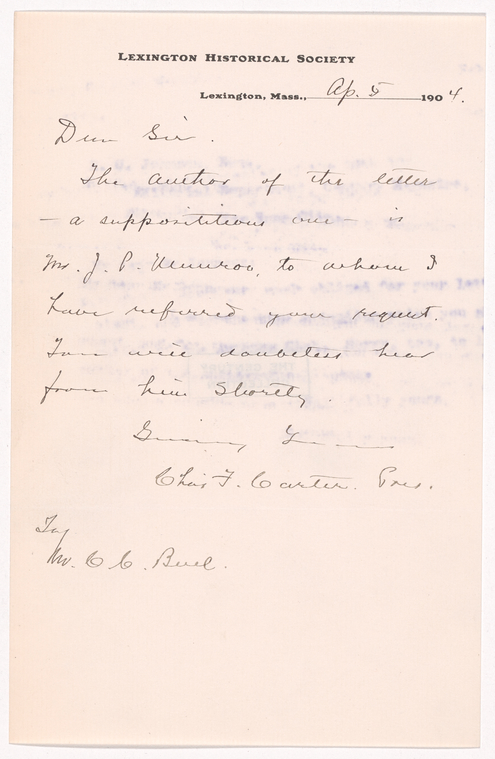 LEXINGTON HISTORICAL SOCIETY
Lexington, Mass., Ap. 5 1904.
Dear Sir.
The author of the letter
— a supposititious one — is
Mr. J. P. Munroe, to whom I
have referred your request.
You will doubtless hear
from him shortly.
Yours
Chas F. Carter. Pres.
To
Mr. C. C. Buel.